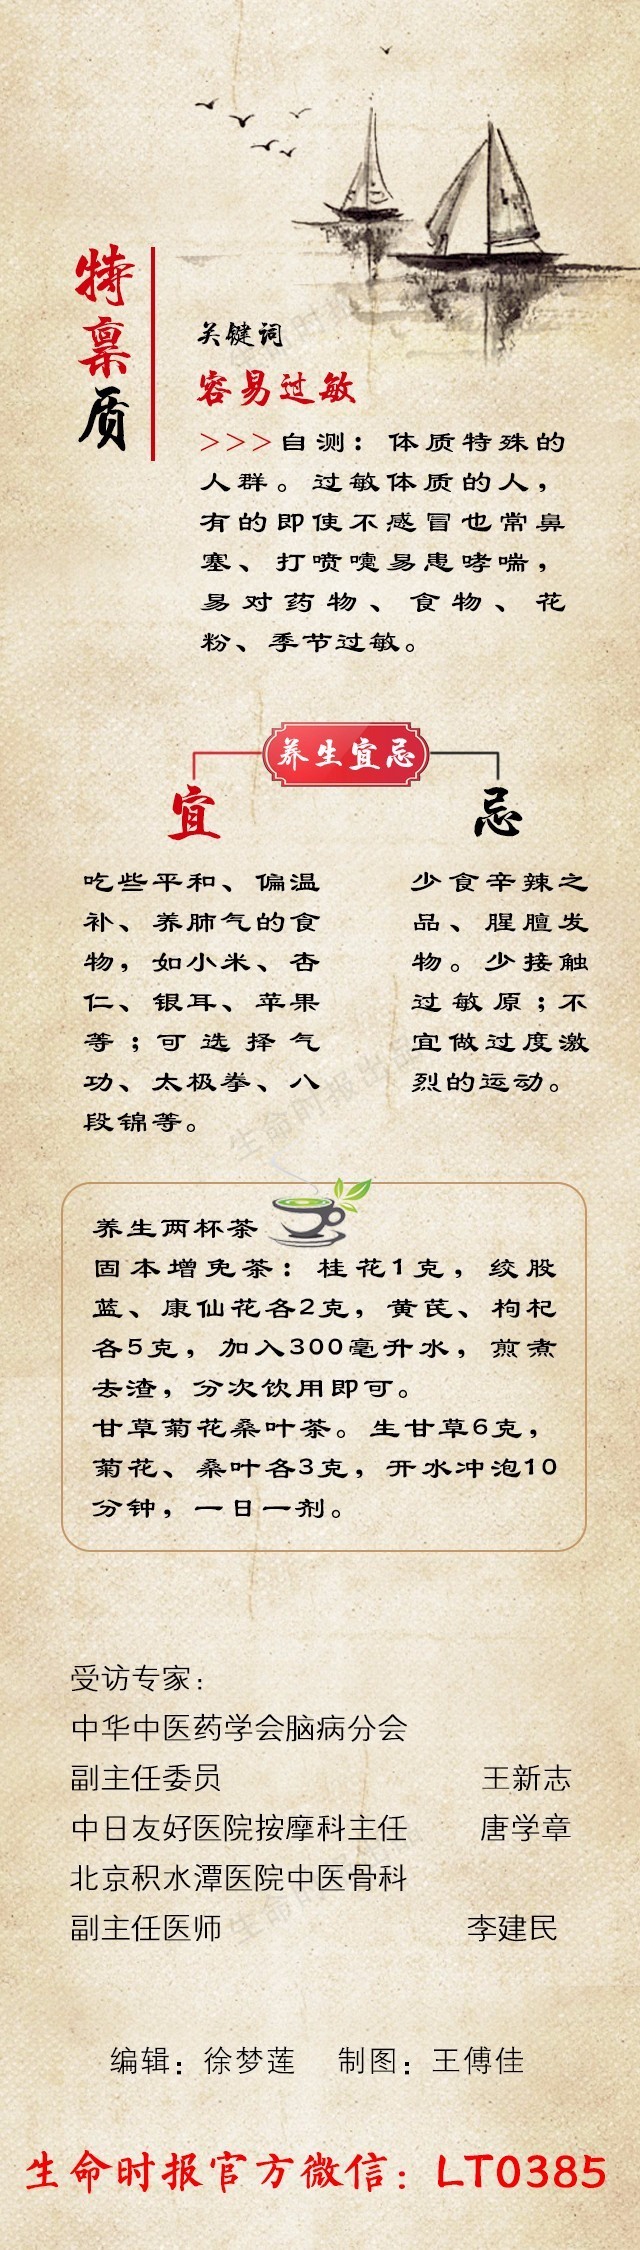 特禀质
关键词
容易过敏
>>>自测：体质特殊的
人群。过敏体质的人，
有的即使不感冒也常鼻
塞、打喷嚏易患哮喘，
易对药物、食物、花
粉、季节过敏。
养生宜忌
宜
吃些平和、偏温
补、养肺气的食
物，如小米、杏
仁、银耳、苹果
等；可选择气
功、太极拳、八
段锦等。
忌
少食辛辣之
品、腥膻发
物。少接触
过敏原；不
宜做过度激
烈的运动。
养生两杯茶
固本增免茶：桂花1克，绞股
蓝、康仙花各2克，黄芪、枸杞
各5克，加入300毫升水，煎煮
去渣，分次饮用即可。
甘草菊花桑叶茶。生甘草6克，
菊花、桑叶各3克，开水冲泡10
分钟，一日一剂。
受访专家：
中华中医药学会脑病分会
副主任委员 王新志
中日友好医院按摩科主任 唐学章
北京积水潭医院中医骨科
副主任医师 李建民
编辑：徐梦莲 制图：王傅佳
生命时报官方微信：LT0385